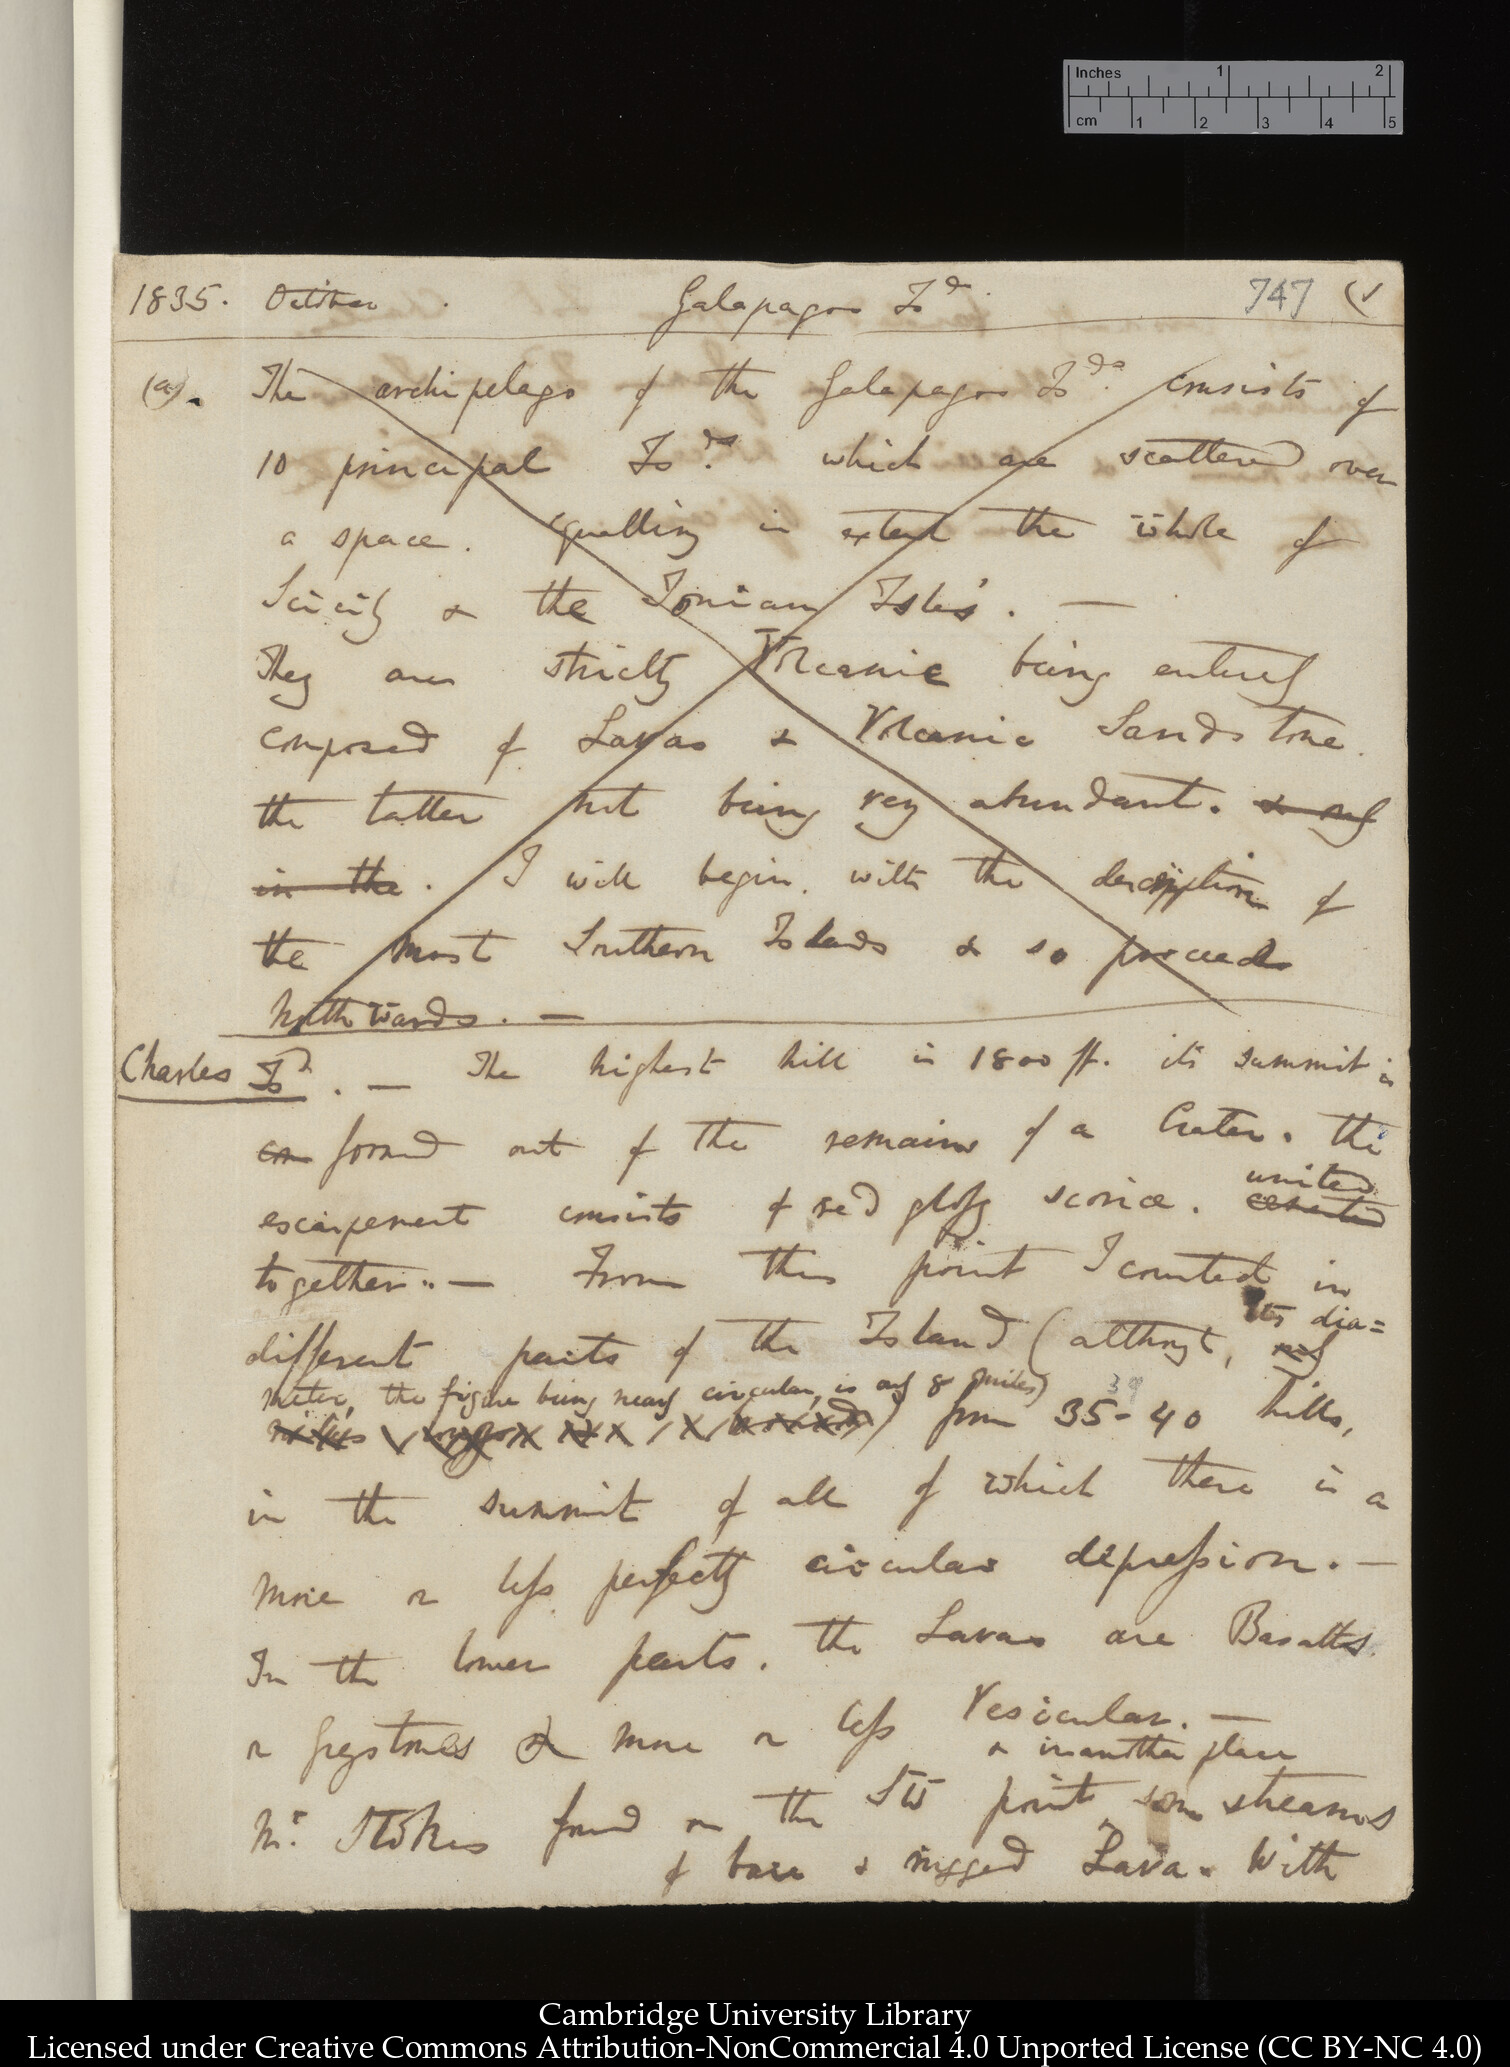 Inches 1 2
cm 1 2 3 4 5
1835. October Galapagos Isd. 747
(a). The archipelago of the Galapagos Isds. consists of
10 principal Isds. which are scattered over
a space. equalling in extent the whole of
Scicily & the Ionian Isles. —
They are strictly Volcanic being entirely
composed of Lavas & Volcanic Sandstone.
the latter not being very abundant. & only
in the. I will begin. with the description of
the most Southern Islands & so proceeds
Northwards. —
Charles Isd. — The highest hill is 1800 ft. its summit is
formed out of the remains of a Crater. the
united
escarpement consists of red glossy scoriæ. cemented
together. — From this point I counted in
its dia=
different parts of the Island (althought, only
meter, the figure being nearly circular, is only 8 miles)
39
from 35-40 hills,
in the summit of all of which there is a
more or less perfectly circular depression. —
In the lower parts. the Lavas are Basalts
or greystones & more or less Vesicular. —
& in another place
Mr. Stokes found on the SW point some streams
of bare & rugged Lava. With
Cambridge University Library
Licensed under Creative Commons Attribution-NonCommercial 4.0 Unported License (CC BY-NC 4.0)